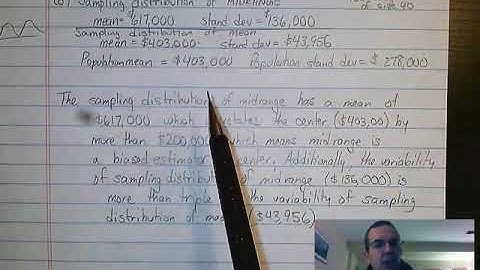 (b) Sampling distribution of MIDRANGE
of size 40
mean = $617,000 stand dev = $136,000
Sampling distribution of mean
mean = $403,000 stand dev = $43,956
Population mean = $403,000 Population stand dev = $278,000
The sampling distribution of midrange has a mean of
$617,000 which the center ($403,00) by
more than $200,000 which means midrange is
a biased estimator center. Additionally, the variability
of sampling distribution of midrange ($136,000) is
more than triple the variability of sampling
distribution of mean ($43,956)